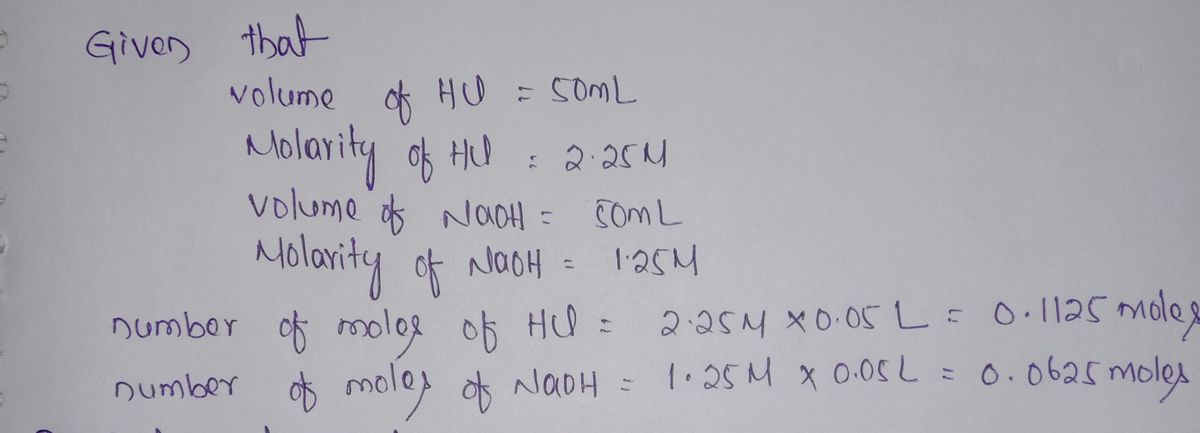 Given that
volume of HCl = 50mL
Molarity of HCl = 2.25M
volume of NaOH = 50mL
Molarity of NaOH = 1.25M
number of moles of HCl = 2.25M × 0.05 L = 0.1125 moles
number of moles of NaOH = 1.25 M × 0.05L = 0.0625 moles